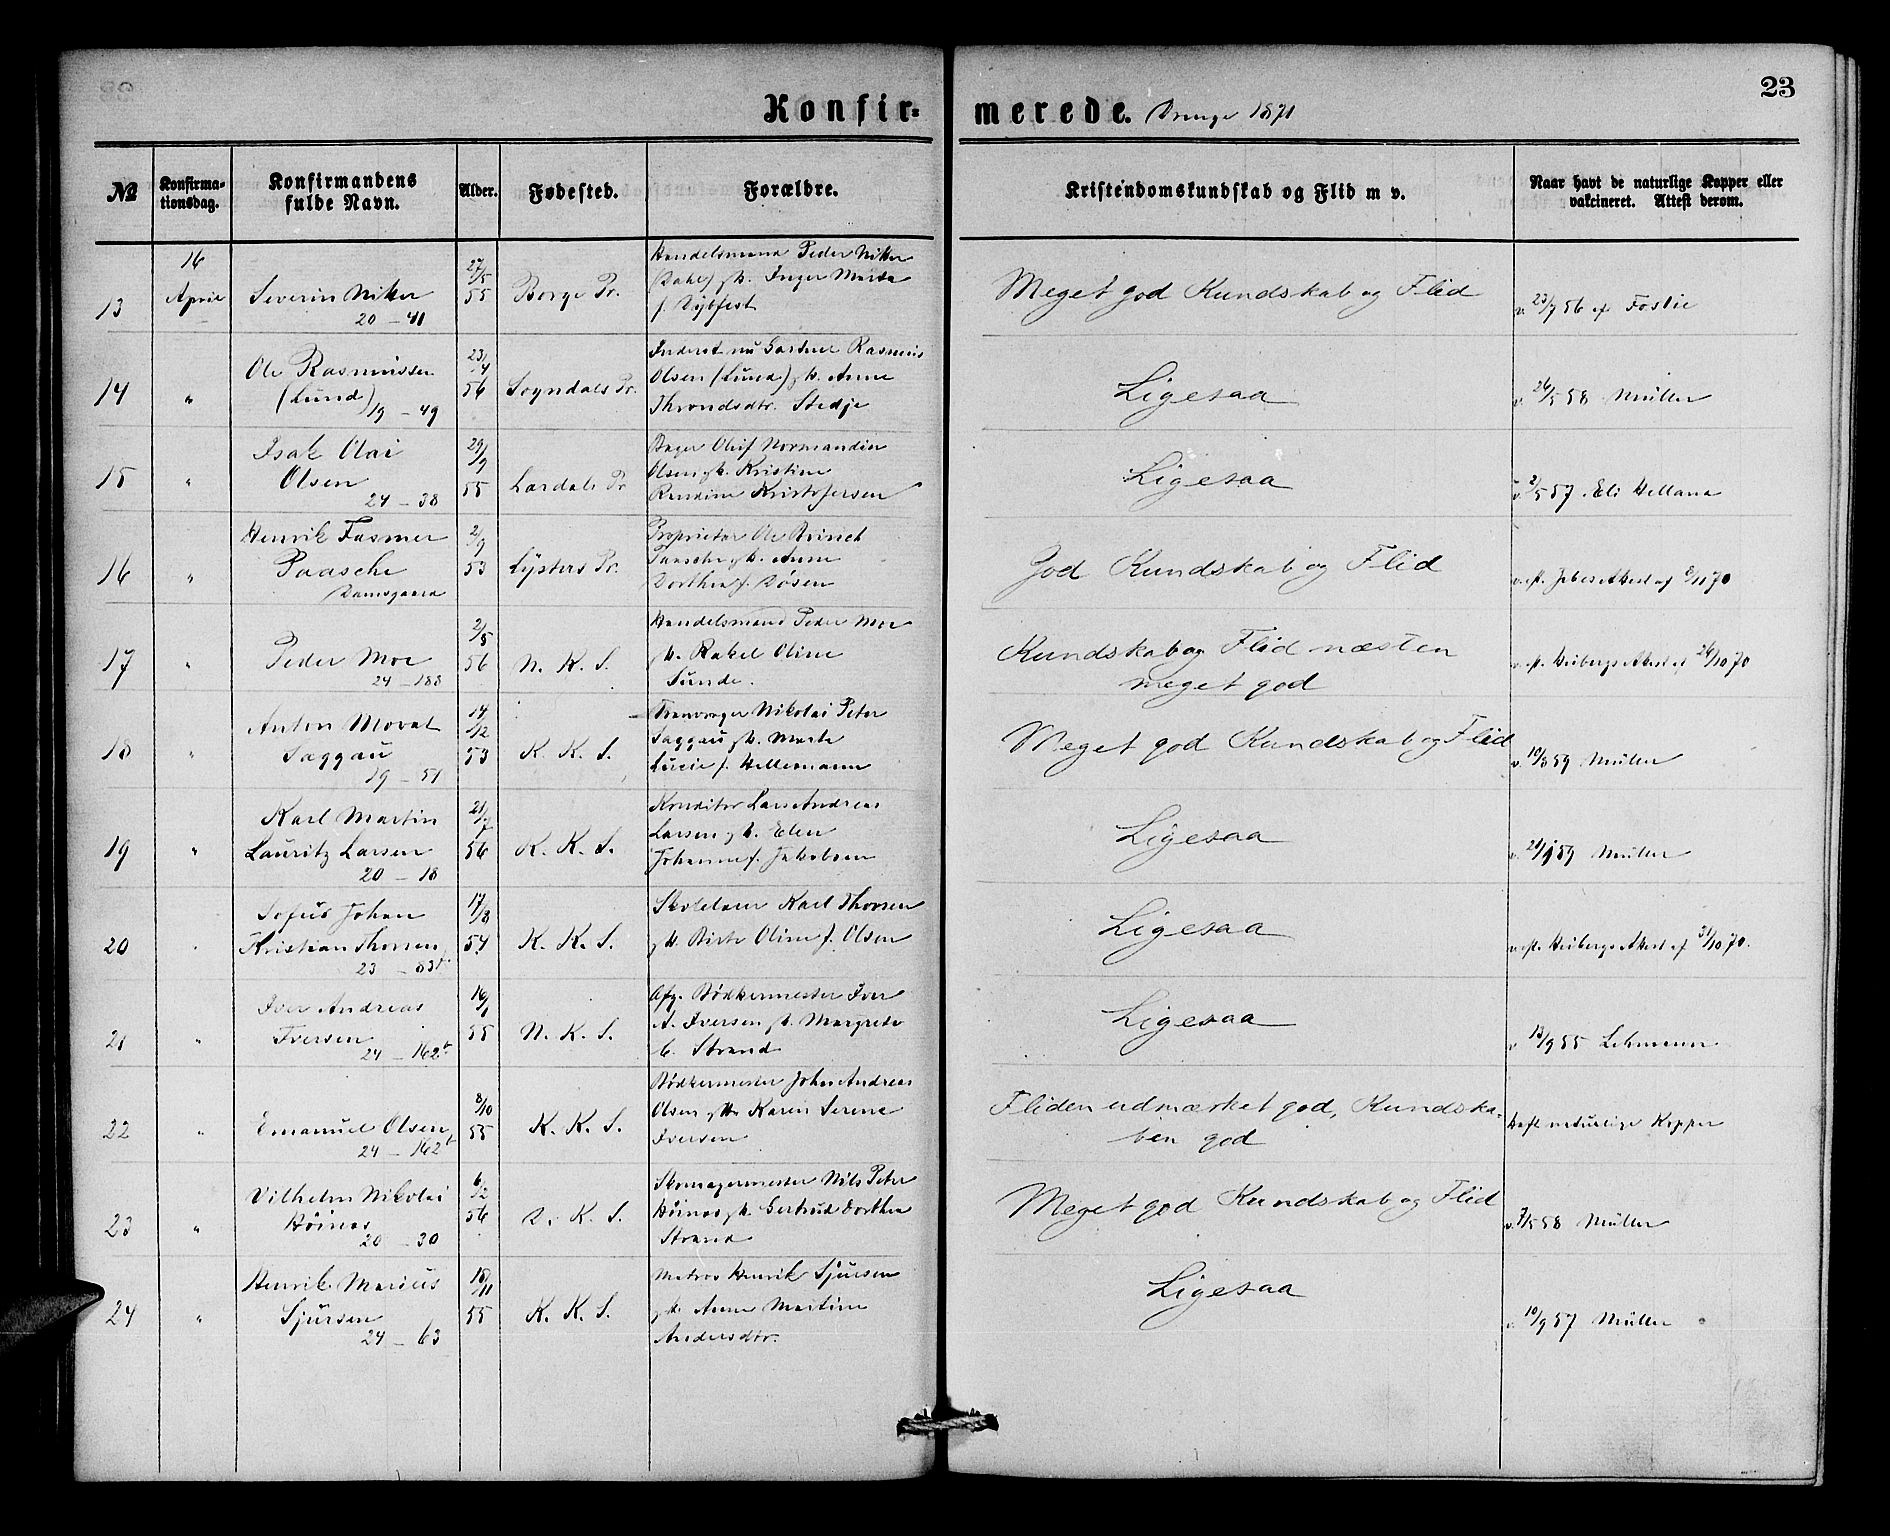 23
Konfir-
merede. Drenge 1871
No
Konfirma-
tionsdag.
Konfirmandens
fulde Navn.
Alder.
Fødested.
Forældre.
Kristendomskundskab og Flid m v.
Naar havt de naturlige Kopper eller
vakcineret. Attest derom.
13
16
April
Severin Nitter
20 - 41
27/5
55
Borge Pr.
Handelsmand Peder Nitter
gk. Inger Marta
Meget god Kundskab og Flid
v. 23/7 56 af
14
"
Ole Rasmussen
(Lund)
19 - 49
23/4
56
Sogndals Pr.
Inderst nu Gartner Rasmus
Olsen (Lund) gk. Anne
Throndsdtr. Stedje
Ligesaa
v. 26/5 58 Müller
15
"
Isak Olai
Olsen
24 - 38
29/9
55
Lærdals Pr
Bager Oluf Normandin
Olsen gk. Kristine
Kristofersen
Ligesaa
v. 2/5 57. Eli Hellana
16
"
Henrik Fasmer
Paasche
Damsgaard
2/9
53
Lysters Pr.
Proprietær Ole
Paasche gk. Anne
Dorthea f. Døsen
God Kundskab og Flid
v. eft. Attest af 8/11 70
17
"
Peder Moe
24 - 188
2/8
56
N. K. S.
Handelsmand Peder Moe
gk. Rakel Oline
Sunde.
Kundskab og Flid næsten
meget god
v. eft. Heibergs Attest af 24/10 70
18
"
Anton
Saggau
19 - 51
14/12
53
K. K. S.
Nikolai Peter
Saggau gk. Marte
Lucie f. Hellemann
Meget god Kundskab og Flid
v. 10/3 59 Müller
19
"
Karl Martin
Lauritz Larsen
20 - 18
21/7
56
K. K. S.
Konditor Lars Andreas
Larsen gk. Elen
Johanne f. Jakobsen
Ligesaa
59 Müller
20
"
Sofus Johan
Kristian Thorsen
23
17/8
54
K. K. S.
Skolelærer Karl Thorsen
gk. Birte Oline f. Olsen
Ligesaa
v. eft. Heibergs Attest af 31/10 70.
21
"
Iver Andreas
Iversen
24 - 162b
16/1
55
N. K. S.
Afg. Bødkermester Iver
A. Iversen gk. Margrete
C. Strand
Ligesaa
v 13/9 55 Lehmann
22
"
Emanuel Olsen
24 - 162b
8/10
55
K. K. S.
Bødkermester Johan Andreas
Olsen gk. Karen Serena
Iversen
Fliden udmærket god, Kundska-
ben god
Havt naturlige Kopper
23
"
Vilhelm Nikolai
Höinæs
20 - 30
6/2
56
D. K. S.
Skomagermester Nils Peter
Höinæs gk. Gertrud Dorthea
Strand
Meget god Kundskab og Flid
v. 7/5 58 Müller
24
"
Henrik Marius
Sjursen
24 - 63
18/11
55
K. K. S.
Matros Henrik Sjursen
gk. Anne Martine
Andersdtr.
Ligesaa
v. 10/9 57 Müller